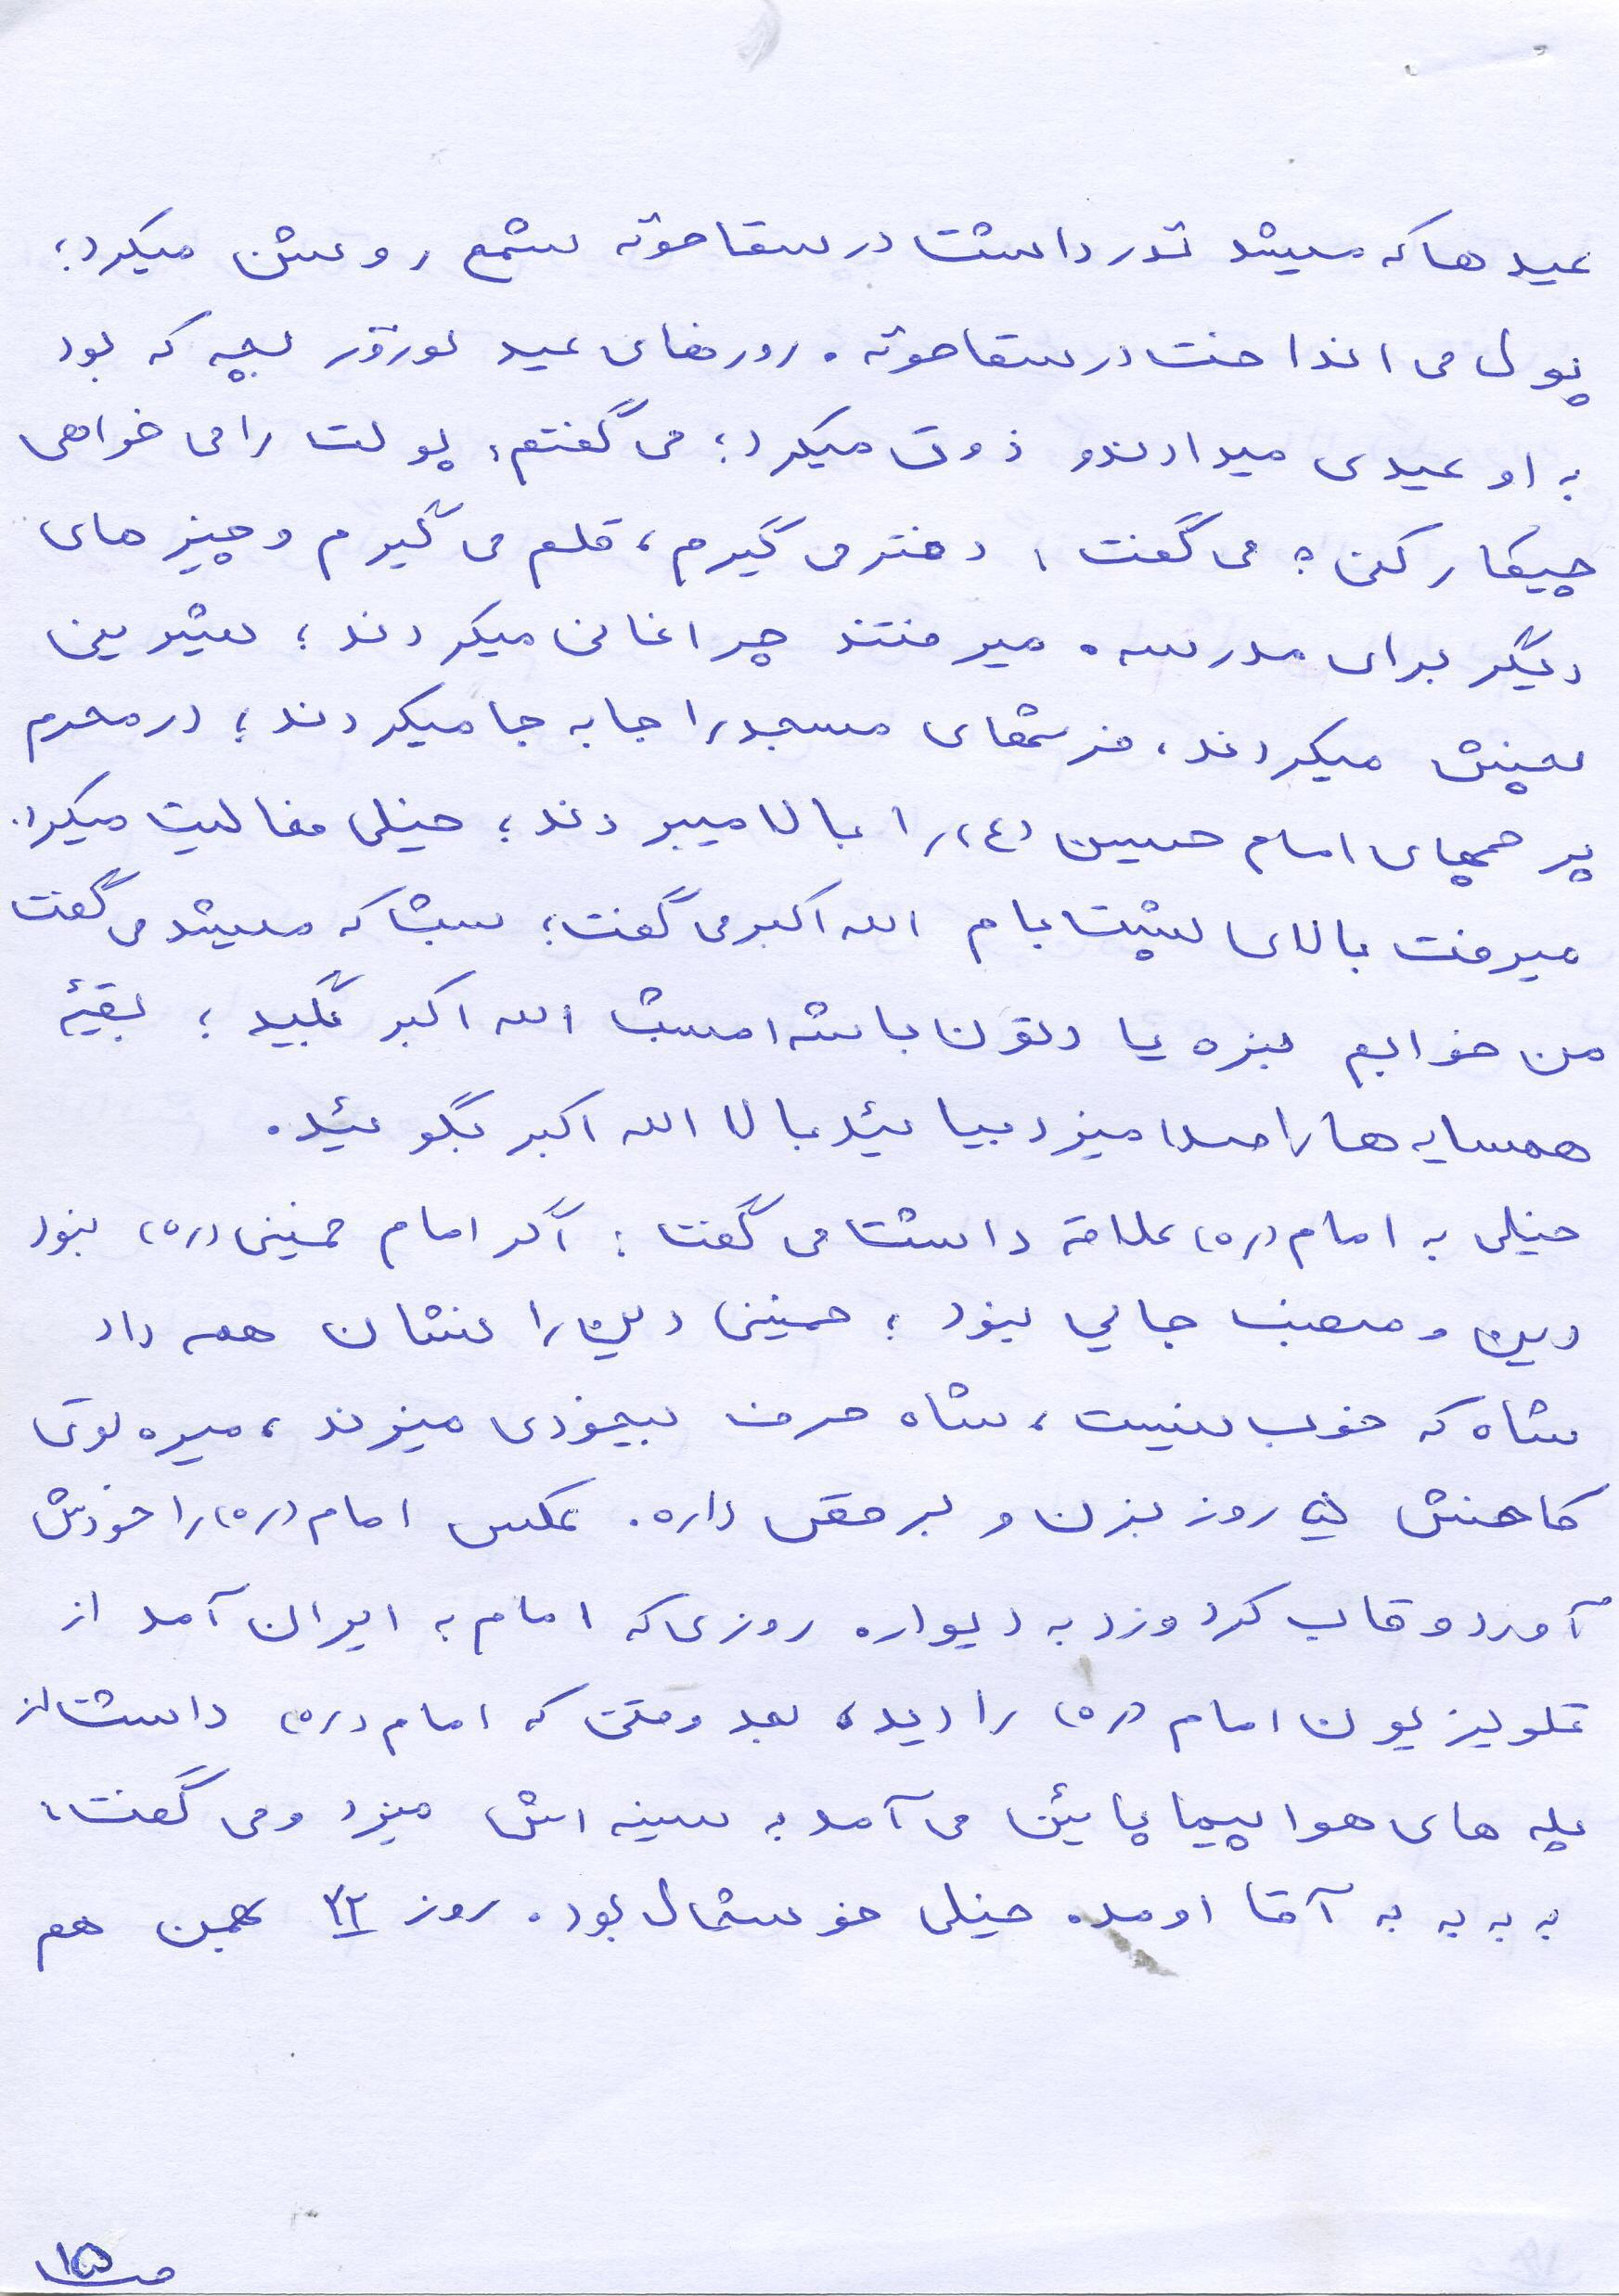 عیدها که میشد نذر داشت در سقاخونه شمع روشن میکرد؛
پول می انداخت در سقاخونه. روزهای عید نوروز بچه که بود
به او عیدی میدادند و ذوق میکرد؛ می گفتم: پولت را می خواهی
چیکار کنی؟ می گفت: دفتر می گیرم، قلم می گیرم و چیزهای
دیگر برای مدرسه. میرفتند چراغانی میکردند؛ شیرینی
پخش میکردند، فرشهای مسجد را جا به جا میکردند؛ در محرم
پرچمهای امام حسین (ع) را بالا میبردند؛ خیلی فعالیت میکرد.
میرفت بالای پشت بام الله اکبر می گفت؛ شب که میشد می گفت
من خوابم نبره یا دتون باشه امشب الله اکبر بگید؛ بقیهٔ
همسایه ها را صدا میزد بیائید بالا الله اکبر بگوئید.
خیلی به امام (ره) علاقه داشت می گفت: اگر امام خمینی (ره) نبود
دین و مذهب جایی نبود؛ خمینی دین را نشان همه داد
شاه که خوب نیست، شاه حرف بیخودی میزند، میره توی
کاخش ۵ روز بزن و برقص داره. عکس امام (ره) را خودش
آورد و قاب کرد و زد به دیوار. روزی که امام به ایران آمد از
تلویزیون امام (ره) را دید، بعد وقتی که امام (ره) داشت از
پله های هواپیما پائین می آمد به سینه اش میزد و می گفت:
به به به به آقا اومد. خیلی خوشحال بود. روز ۲۲ بهمن هم
ص ۱۵